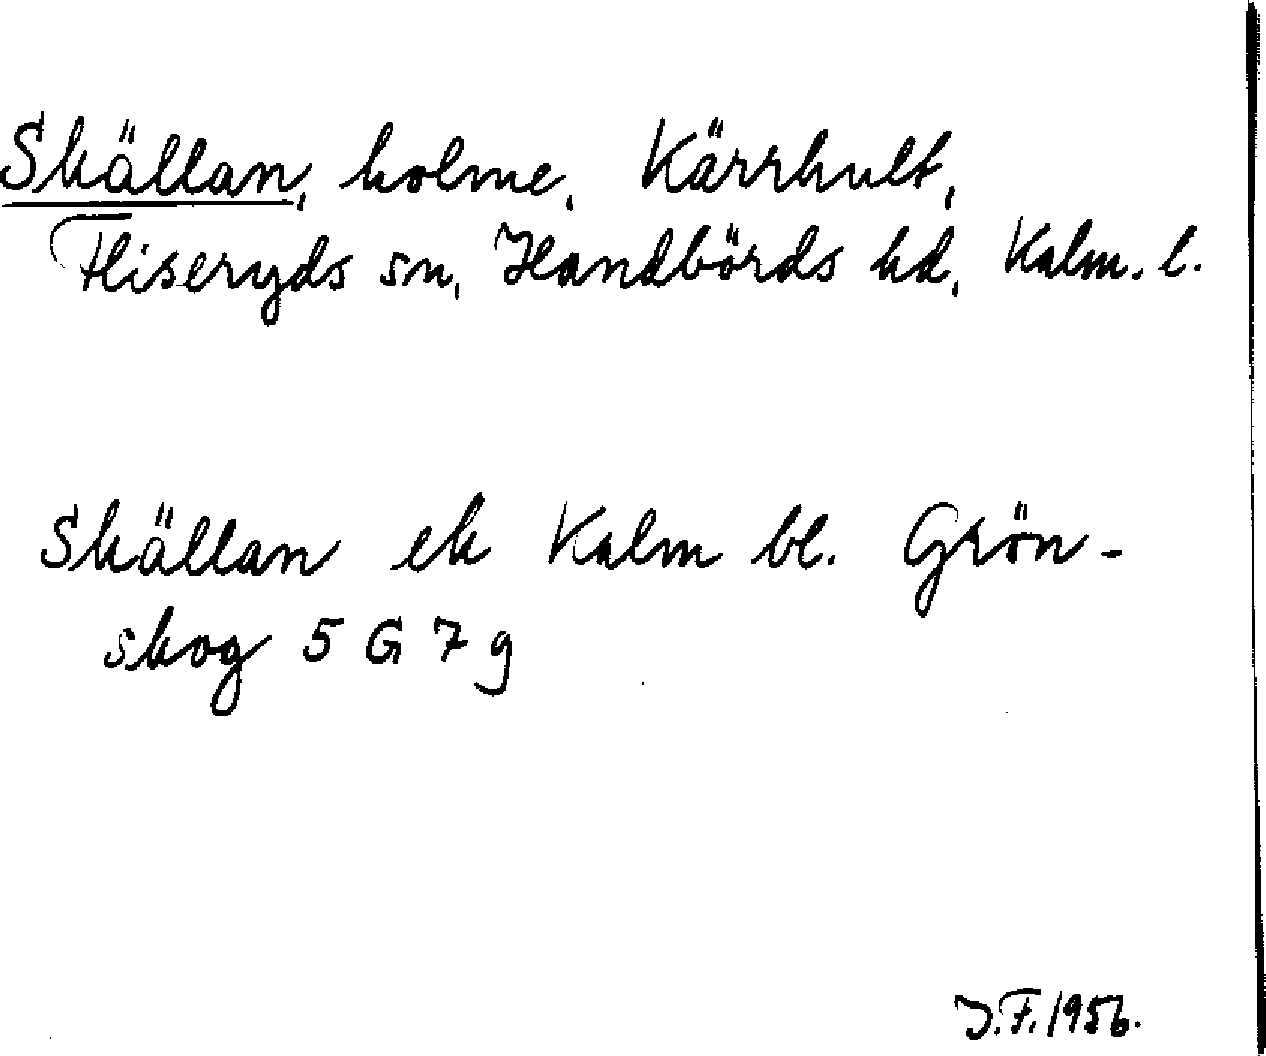 Skällan, holme, Kärrhult,
Fliseryds sn, Handbörds hd, Kalm. l.
Skällan ek Kalm bl. Grön-
skog 5 G 7 g
J.F. 1956.